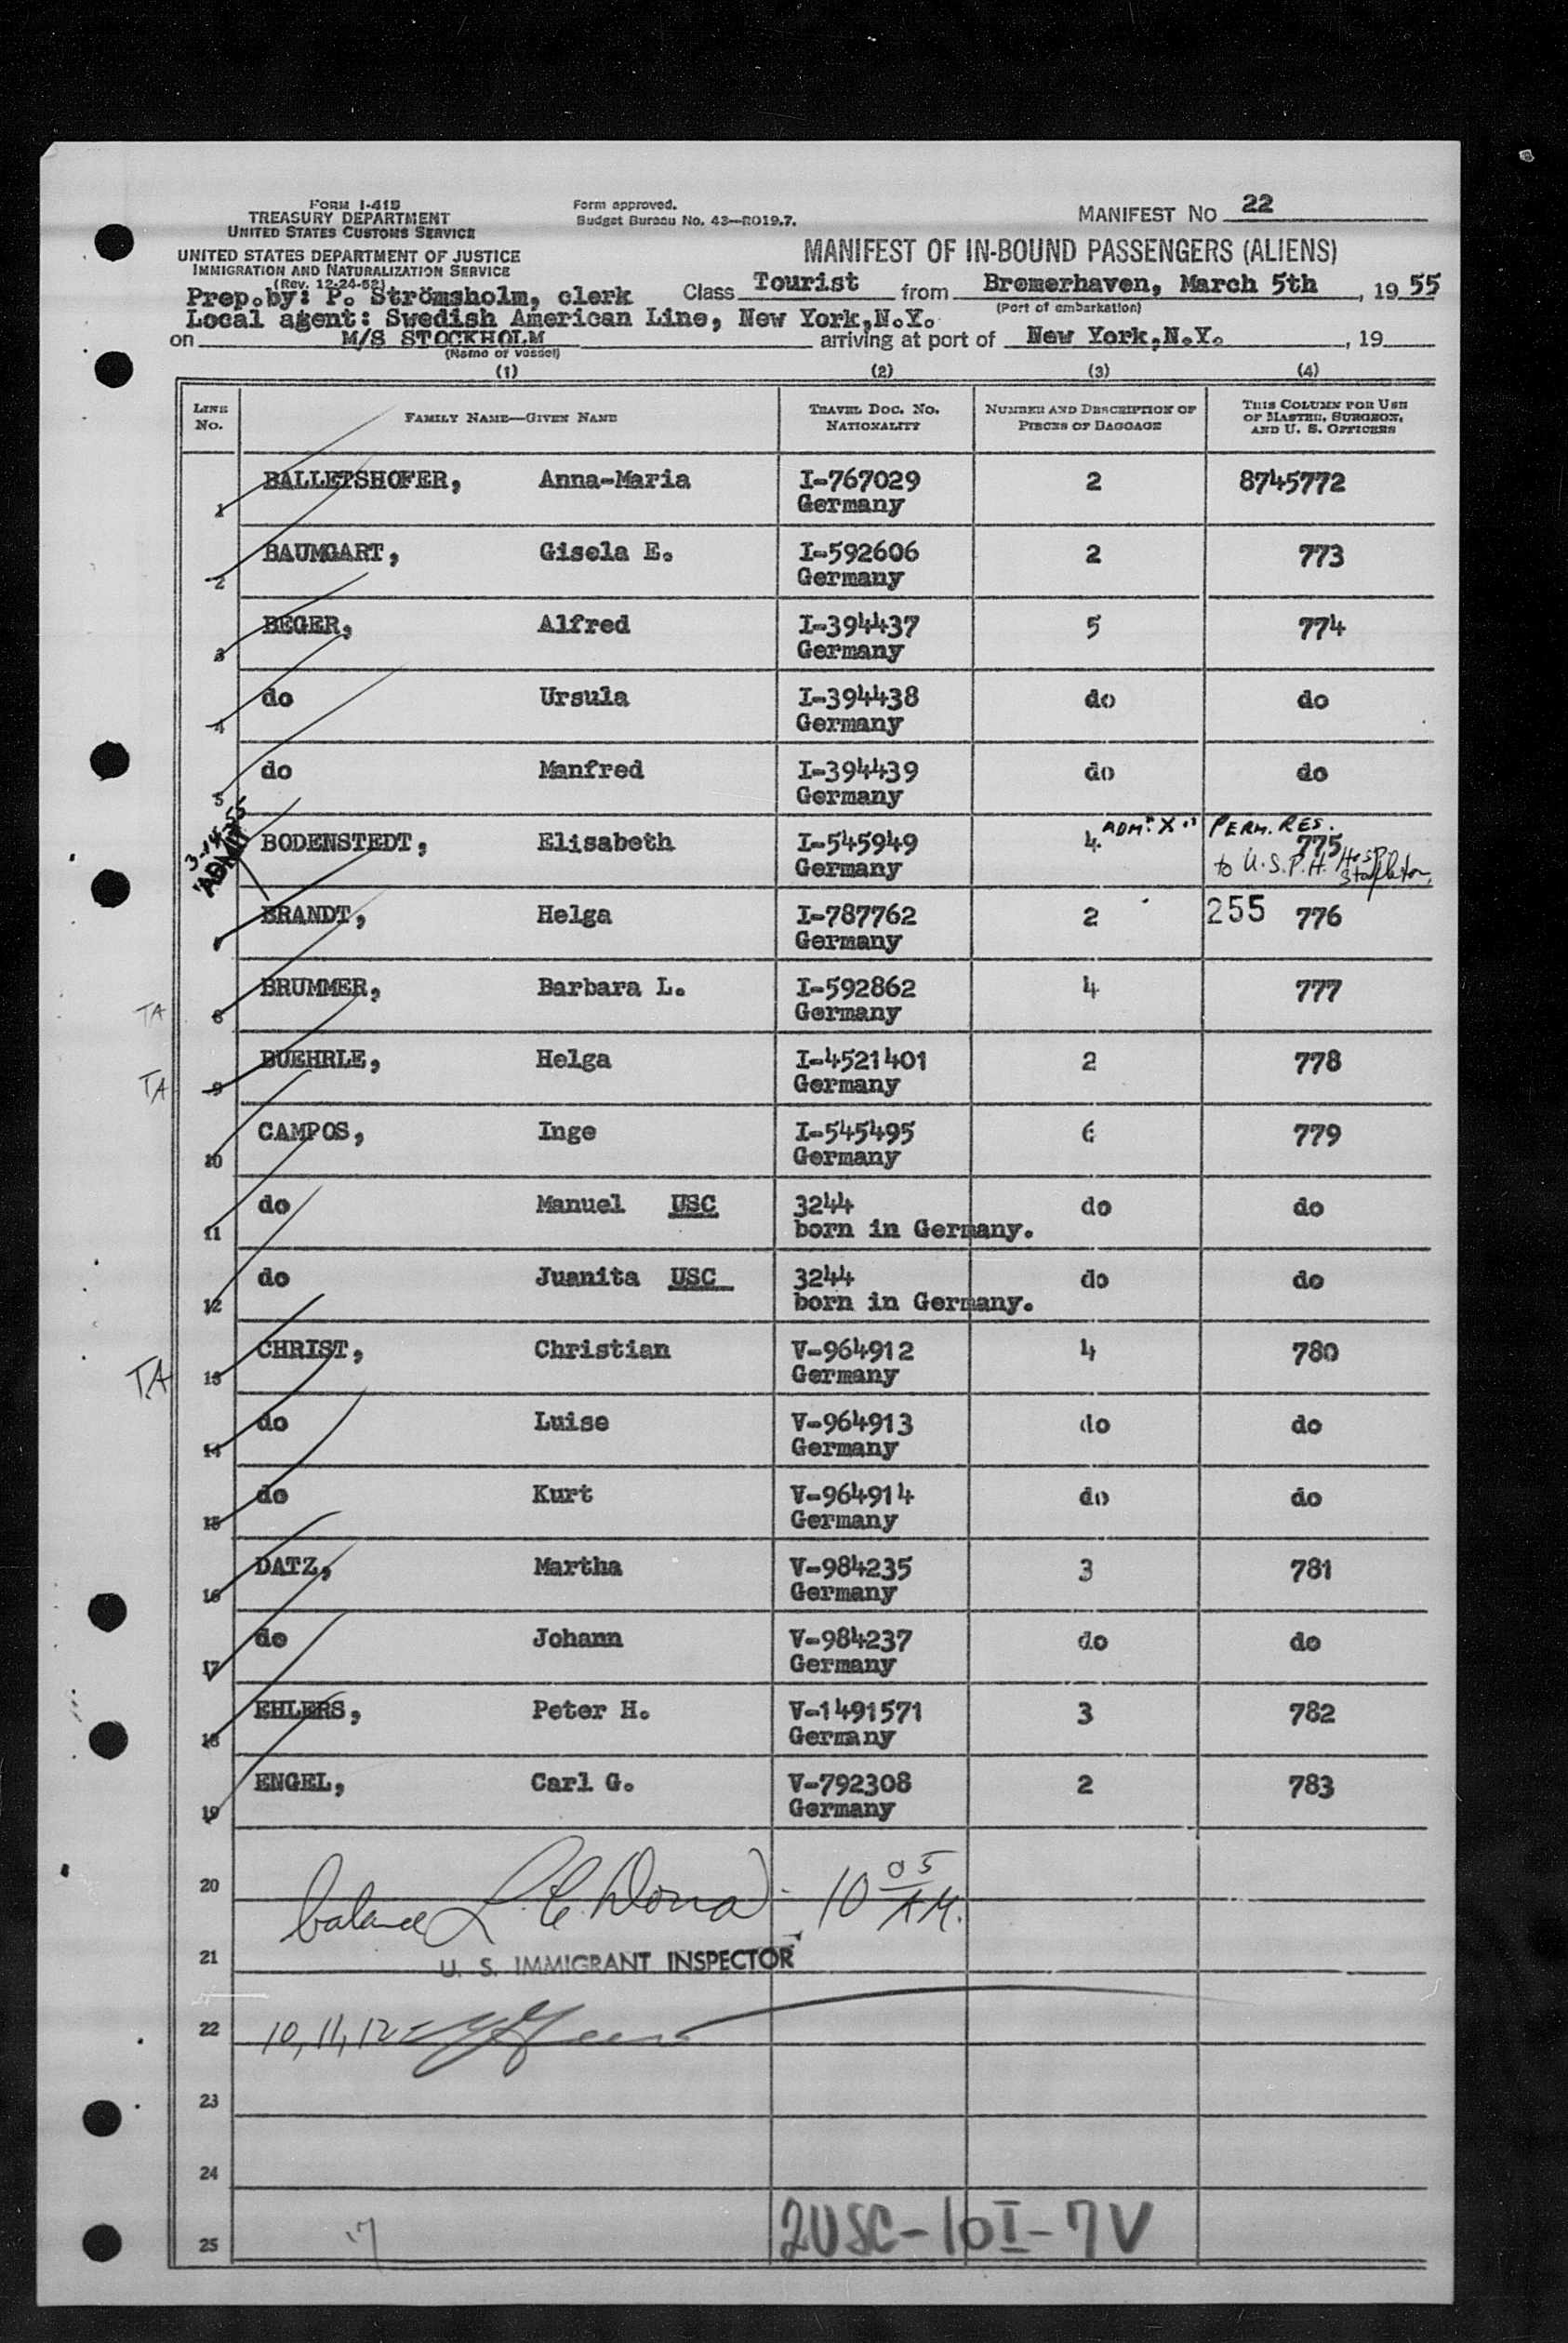 FORM I-415
TREASURY DEPARTMENT
UNITED STATES CUSTOMS SERVICE
UNITED STATES DEPARTMENT OF JUSTICE
IMMIGRATION AND NATURALIZATION SERVICE
(Rev. 12-24-52)
Form approved.
Budget Bureau No. 43—R019.7.
MANIFEST NO 22
MANIFEST OF IN-BOUND PASSENGERS (ALIENS)
Prep.by: P. Strömsholm, clerk Class Tourist from Bremerhaven, March 5th, 1955
(Port of embarkation)
Local agent: Swedish American Line, New York,N.Y.
on M/S STOCKHOLM arriving at port of New York,N.Y., 19
(Name of vessel)
(1) (2) (3) (4)
LINE NO. FAMILY NAME—GIVEN NAME TRAVEL DOC. NO. NATIONALITY NUMBER AND DESCRIPTION OF PIECES OF BAGGAGE THIS COLUMN FOR USE OF MASTER, SURGEON, AND U. S. OFFICERS
1 BALLETSHOFER, Anna-Maria I-767029 2 8745772
Germany
2 BAUMGART, Gisela E. I-592606 2 773
Germany
3 BEGER, Alfred I-394437 5 774
Germany
4 do Ursula I-394438 do do
Germany
5 do Manfred I-394439 do do
Germany
3-14-55 ADMIT
ADM. "X" PERM. RES.
BODENSTEDT, Elisabeth I-545949 4 775
Germany to U.S.P.H. Hosp Stapleton,
BRANDT, Helga I-787762 2 255 776
Germany
TA 8 BRUMMER, Barbara L. I-592862 4 777
Germany
TA 9 BUEHRLE, Helga I-4521401 2 778
Germany
10 CAMPOS, Inge I-545495 6 779
Germany
11 do Manuel USC 3244 do do
born in Germany.
12 do Juanita USC 3244 do do
born in Germany.
TA 13 CHRIST, Christian V-964912 4 780
Germany
14 do Luise V-964913 do do
Germany
15 do Kurt V-964914 do do
Germany
16 DATZ, Martha V-984235 3 781
Germany
17 do Johann V-984237 do do
Germany
18 EHLERS, Peter H. V-1491571 3 782
Germany
19 ENGEL, Carl G. V-792308 2 783
Germany
20 balance 10 05 A.M.
21 U. S. IMMIGRANT INSPECTOR
22 10, 11, 12
23
24
25 17 2USC-10I-7V